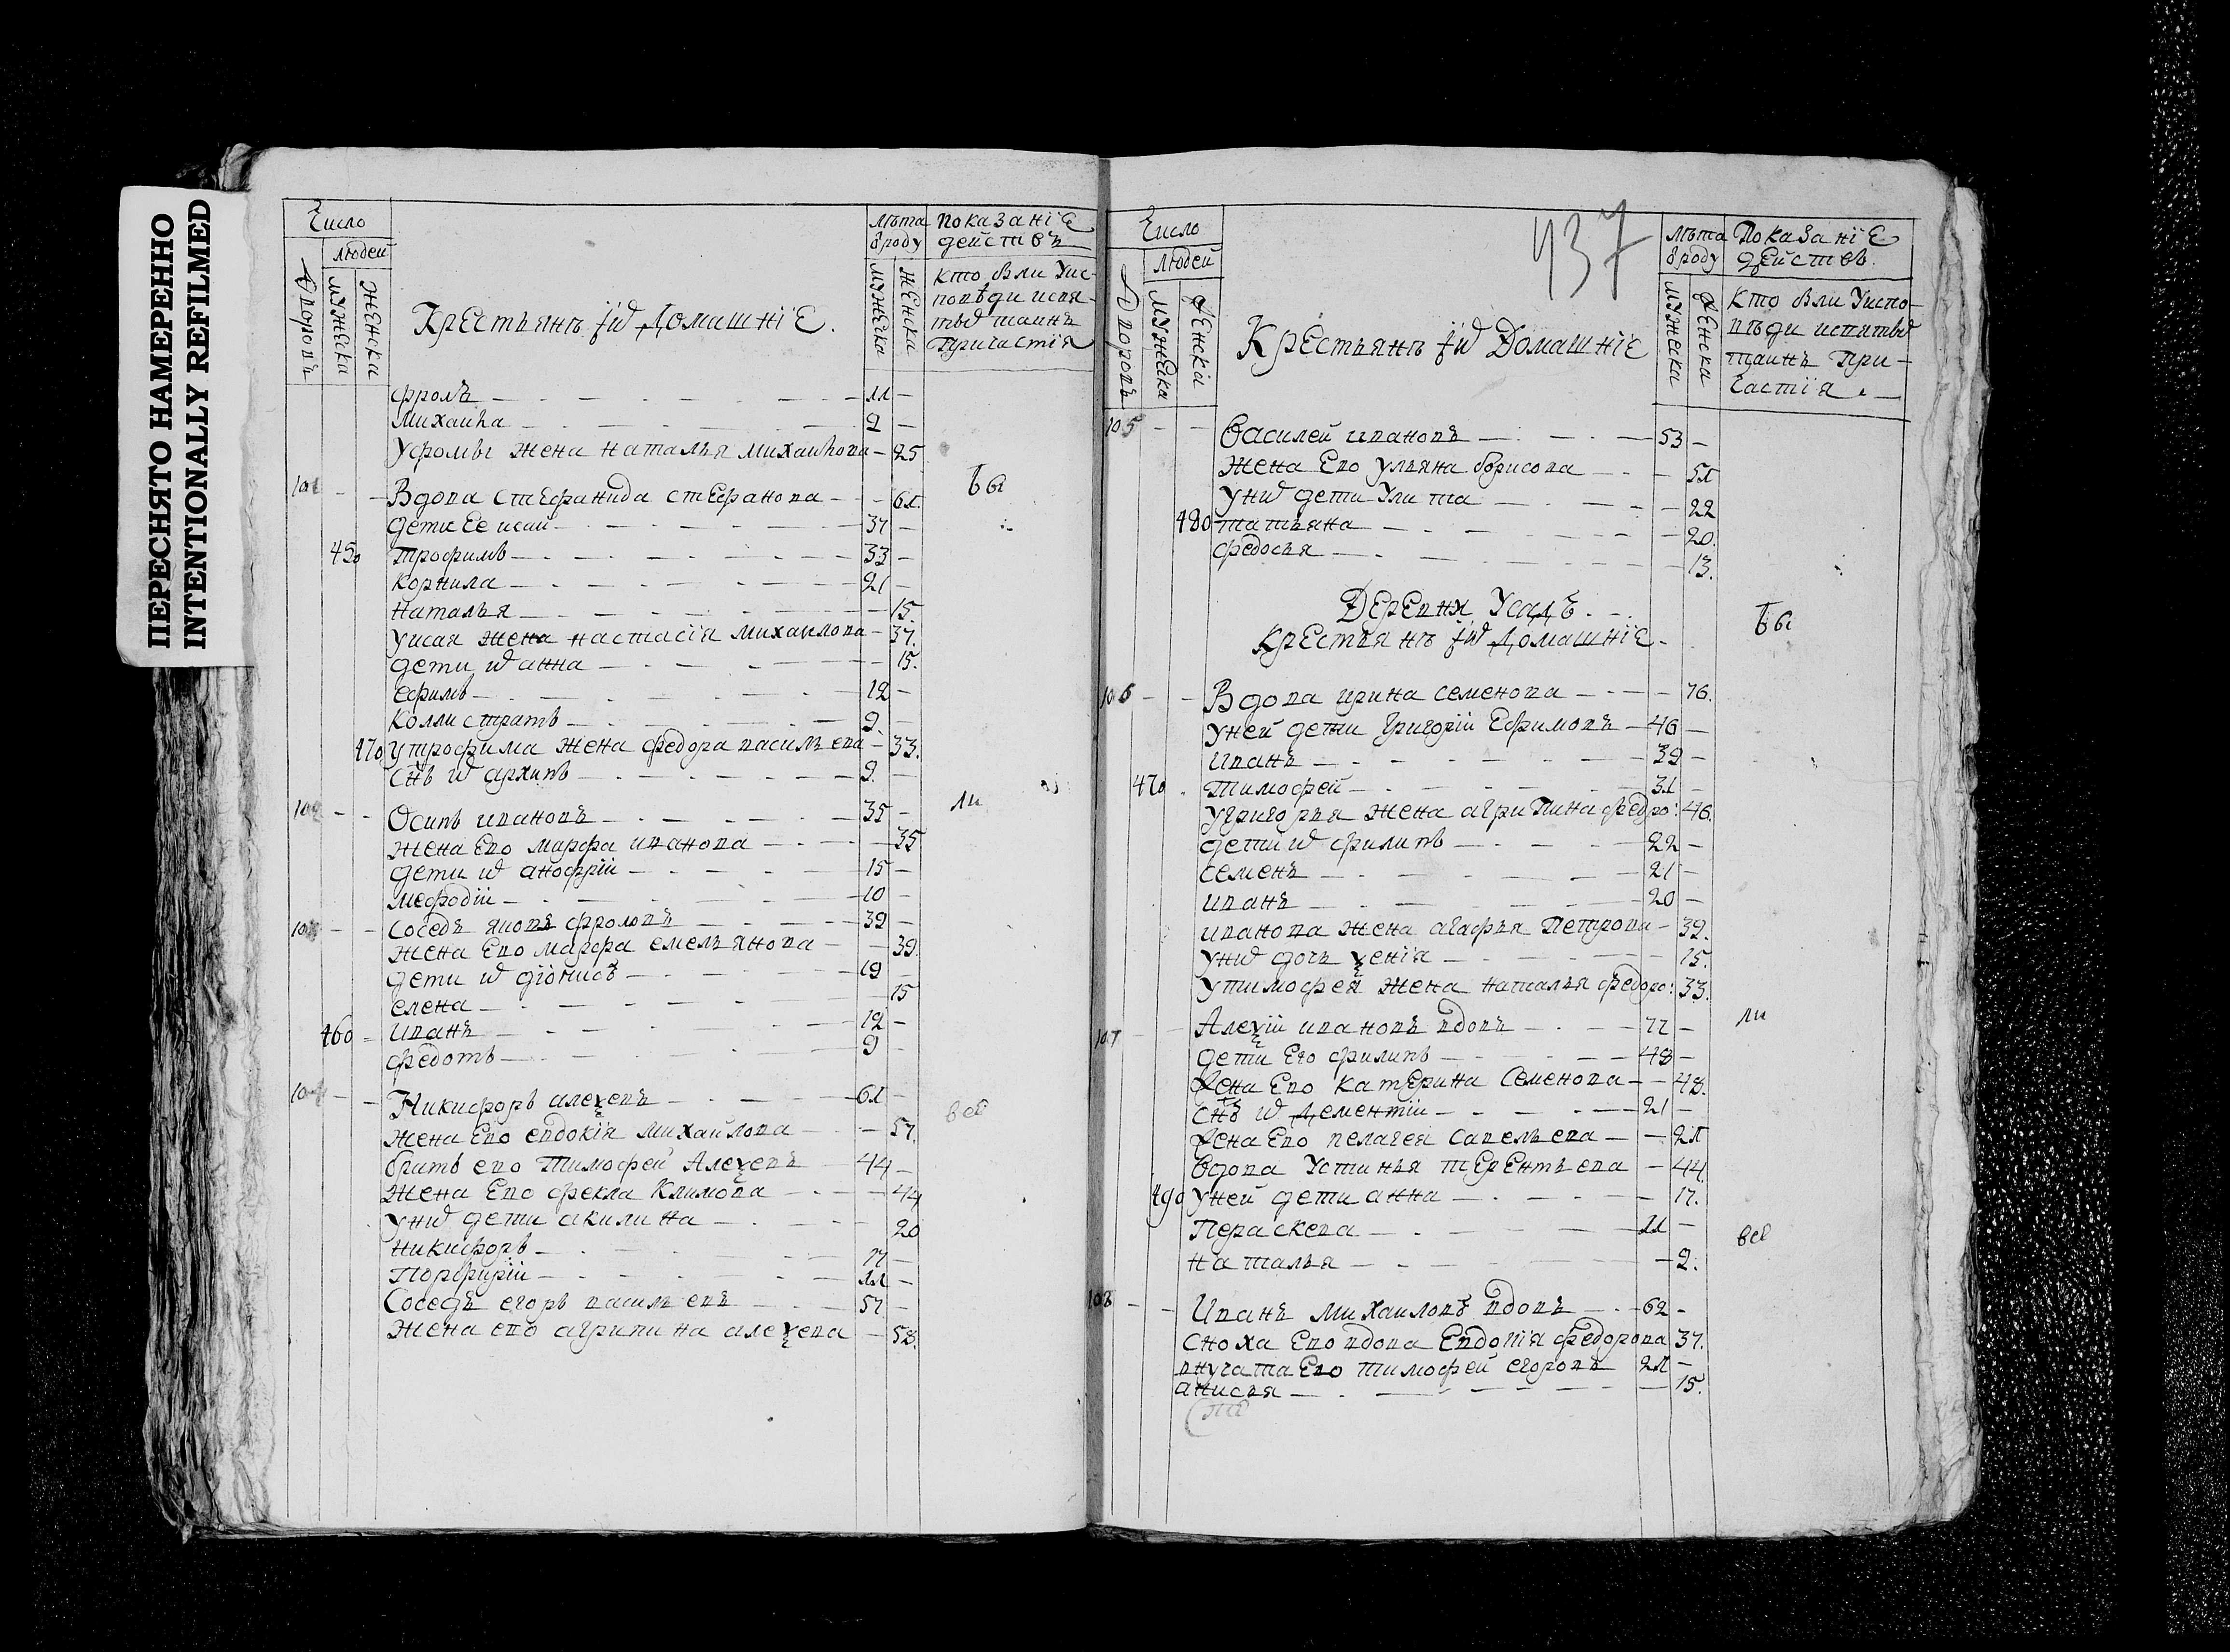 ПЕРЕСНЯТО НАМЕРЕННО
INTENTIONALLY REFILMED
Число
людей
Дворовъ
мужеска
женска
Крестьянъ їѿ домашнiе.
лѣта
ѿроду
мужеска
женска
показанiе
действъ
кто были уис
поведи исвя
тыѿ таинъ
причастiя
фролъ 11
Михаила 9
Уфролы жена наталья михаилова 25
101 Вдова стефанида стефанова 61
дети ее исаи 37
450 трофимъ 33
корнила 21
наталья 15
уисая жена настасiя михаилова 37
дети ѿ анна 15
ефимъ 12
коллистратъ 9
470 утрофима жена федора васильева 33
снъ ѿ архипъ 9
102 Осипъ ивановъ 35
жена ево марфа иванова 35
дети ѿ анофрiи 15
мефодiи 10
103 соседъ яковъ фроловъ 39
жена ево марфа емельянова 39
дети ѿ дiонисъ 19
елена 15
460 иванъ 12
федотъ 9
104 Никифоръ алеѯевъ 61
жена ево евдокiя михаилова 57
братъ ево тимофеи Алеѯевъ 44
жена ево фекла климова 44
униѿ дети акилина 20
никифоръ 17
порфирiи 11
соседъ егоръ васильевъ 57
жена ево агрипина алеѯева 58
бы
ли
все
437
Число
людей
Дворовъ
мужеска
женскiа
Крестьянъ їѿ Домашнiе
лѣта
ѿроду
мужеска
женска
Показанiе
действъ.
кто были Уиспо
вѣди исвятыѿ
таинъ при
частiя
105 Василей ивановъ 53
жена Ево ульяна борисова 51
униѿ дети Улита 22
480 татьяна 20
федосья 13
Деревня Усадъ.
Крестьянъ їѿ домашнiе
106 Вдова ирина семенова 76
уней дети григорiи Ефимовъ 46
иванъ 39
470 тимофей 31
угригорья жена агрипина федро: 46
дети ѿ филипъ 22
семенъ 21
иванъ 20
иванова жена агафья петрова 39
униѿ дочь ѯенiя 15
утимофея жена наталья федоро: 33
107 Алеѯiи ивановъ вдовъ 77
дети его филипъ 48
Жена Ево катерина Семенова 48
снъ ѿ дементiи 21
Жена Ево пелагея савельева 21
Вдова Устинья терентьева 44
490 уней дети анна 17
Пераскева 11
наталья 9
108 Иванъ михаиловъ вдовъ 62
сноха Ево вдова Евдокiя федорова 37
внучата Ево тимофей егоровъ 21
анисья 15
бы
ли
все